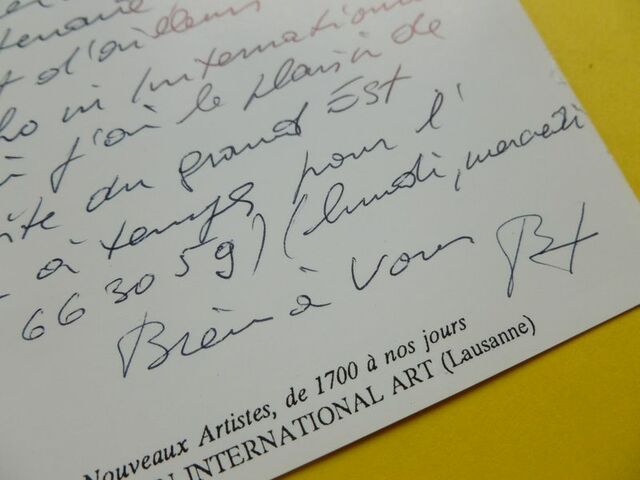 t d'ailleurs
ho in International
j'ai le plaisir de
du grand Est
à temps pour l'
66 30 59) (lundi, mercredi
Bien à Vous
Nouveaux Artistes, de 1700 à nos jours
N INTERNATIONAL ART (Lausanne)